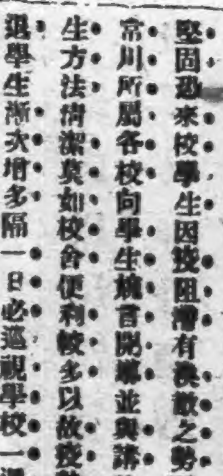 堅固邇來校學生因疫阻滯有渙散之勢
常川所屬各校向學生苦開導並與講
生方法清潔莫如校舍便利較多以故疫
退學生漸次增多隔一日必巡視學校一